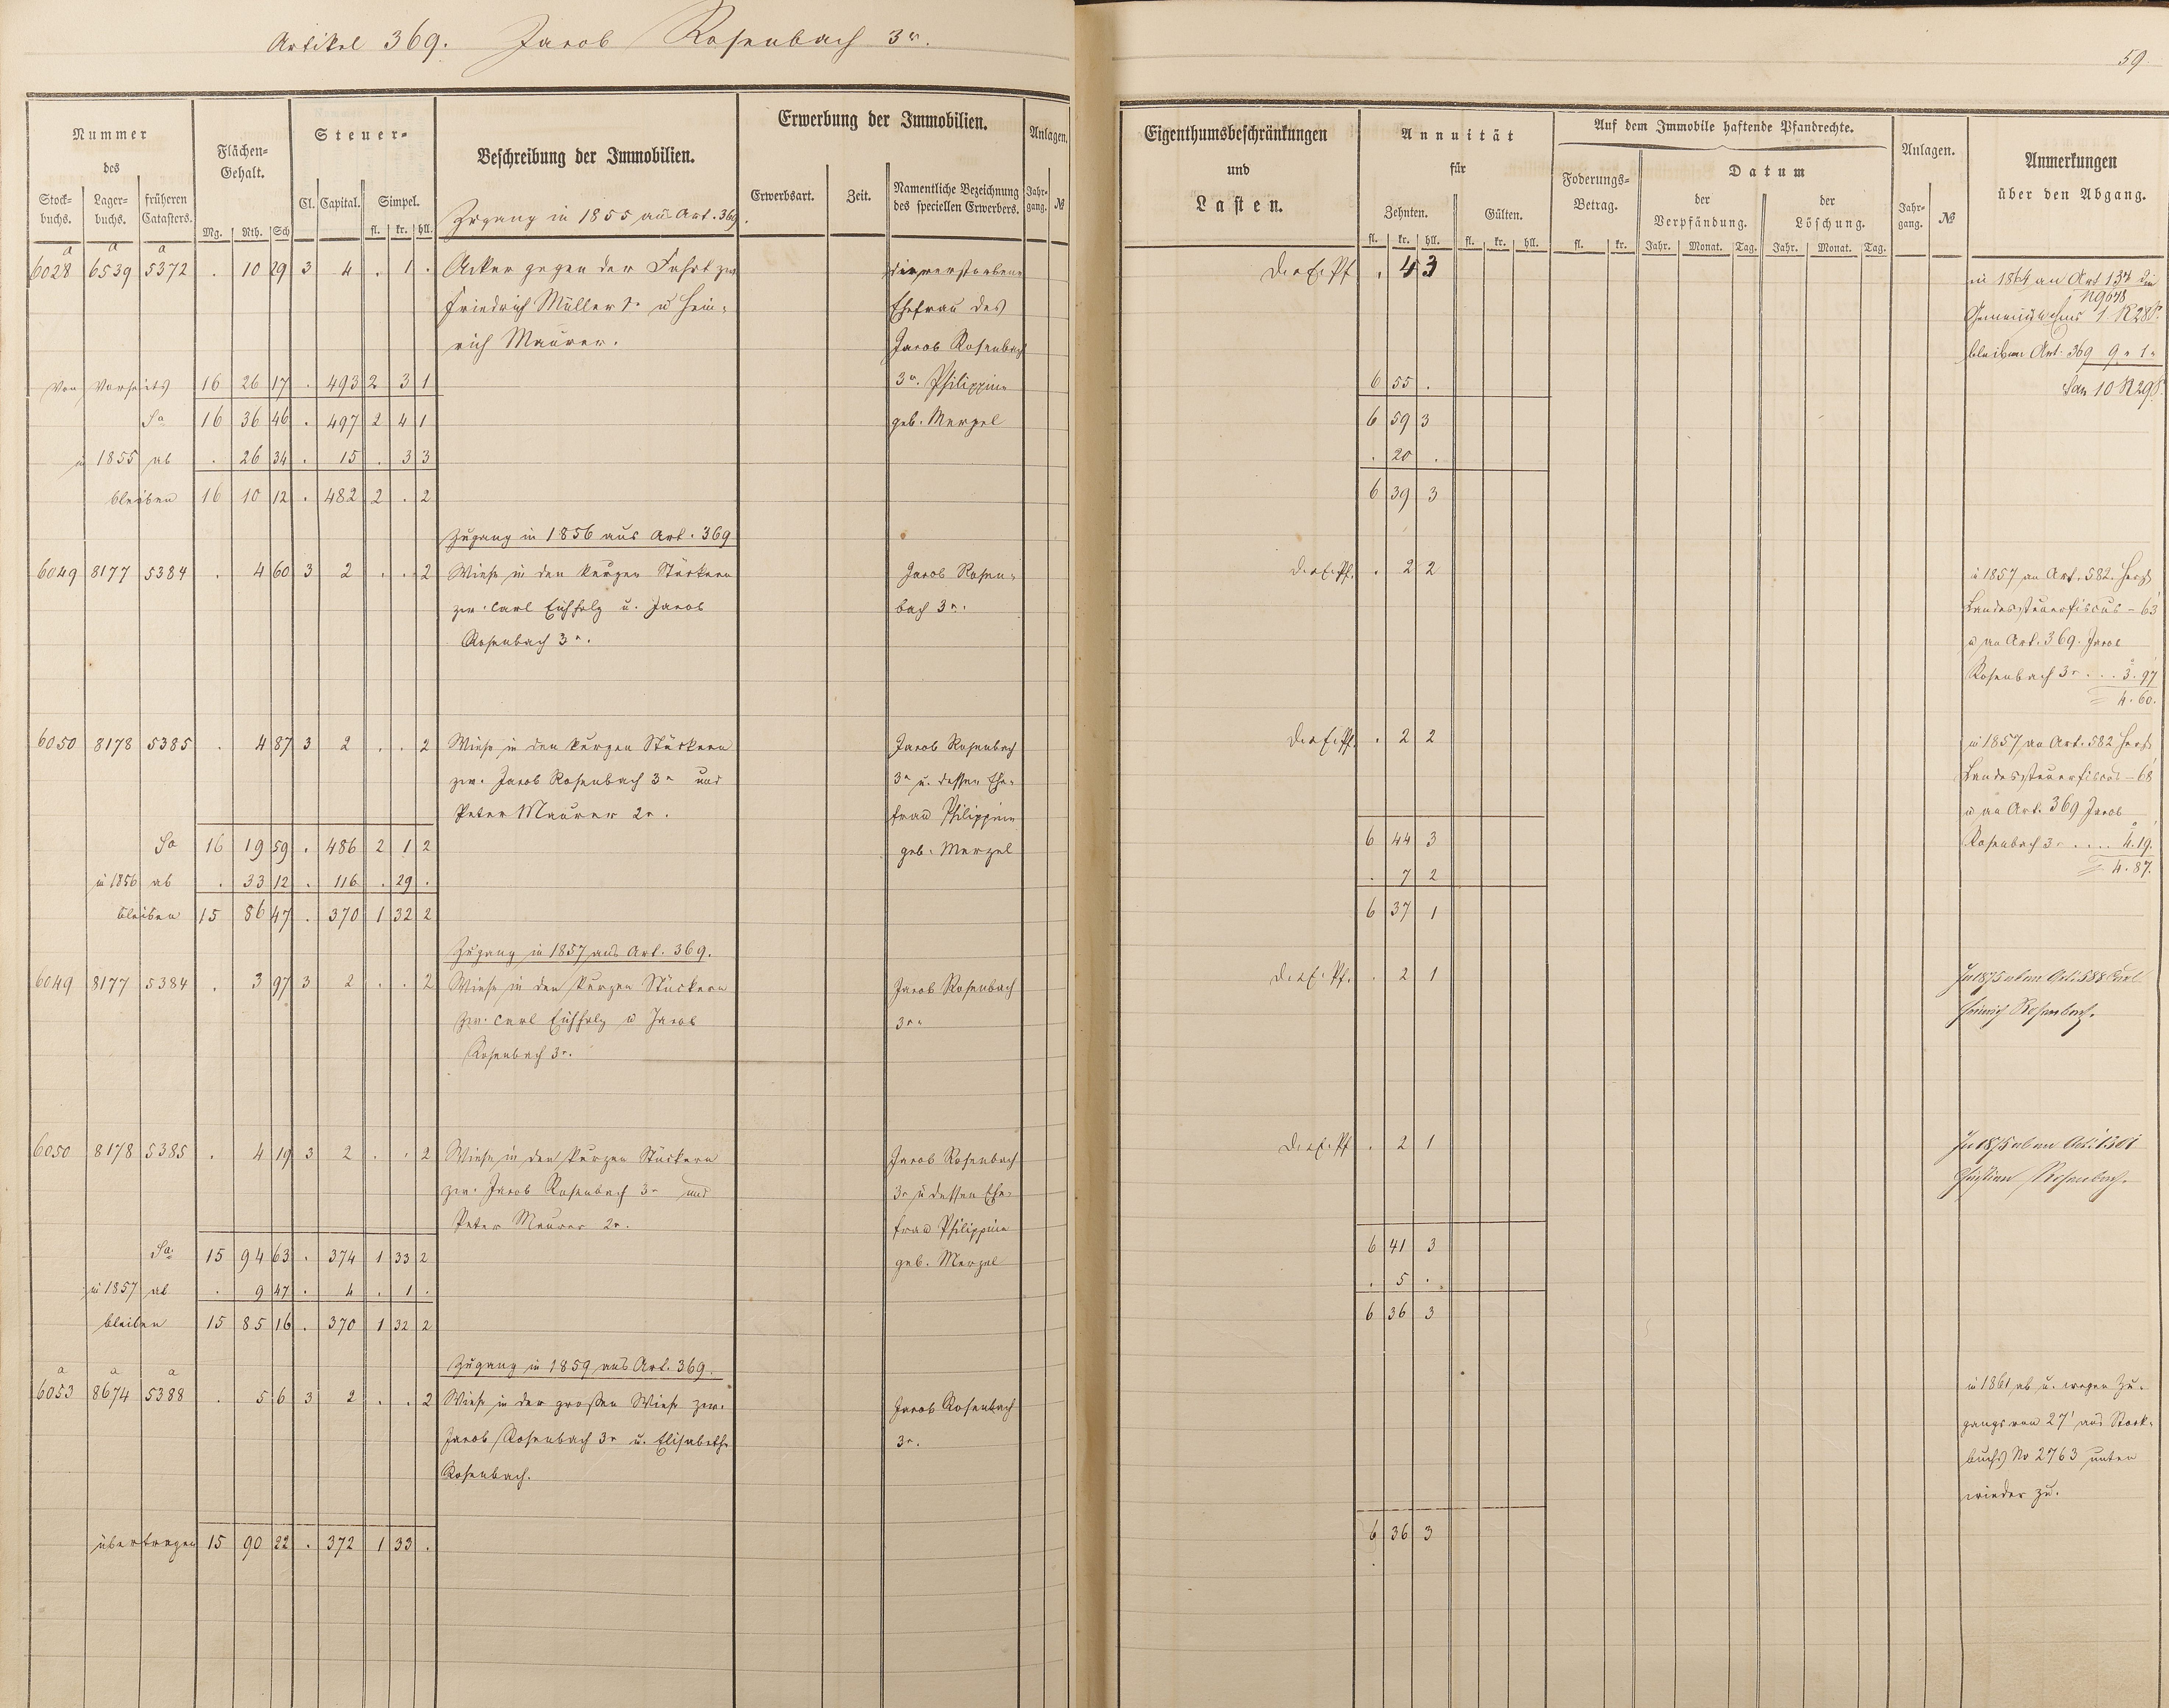 Artikel 369. Jacob Rosenbach 3r.
59.
Nummer
des
Stock-
buchs.
Lager-
buchs.
früheren
Catasters.
Flächen-
Gehalt.
Mg. Rth. Sch
Steuer-
Cl. Capital. Simpel.
fl. kr. hll.
Beschreibung der Immobilien.
Erwerbung der Immobilien.
Erwerbsart. Zeit.
Namentliche Bezeichnung
des speciellen Erwerbers.
Anlagen.
Jahr-
gang. №
Eigenthumsbeschränkungen
und
Lasten.
Annuität
für
Zehnten. Gülten.
fl. kr. hll. fl. kr. hll.
Auf dem Immobile haftende Pfandrechte.
Foderungs-
Betrag.
fl. kr.
Datum
der
Verpfändung.
der
Löschung.
Jahr. Monat. Tag. Jahr. Monat. Tag.
Anlagen.
Jahr-
gang. №
Anmerkungen
über den Abgang.
Zugang in 1855 aus Art. 369.
a a a
6028 6539 5372 . 10 29 3 4 . 1 . Acker gegen der Fahrt zw.
Friedrich Müller 1r u Hein-
rich Maurer.
die verstorbene
Ehefrau des
Jacob Rosenbach
3r. Philippine
geb. Merzel
. 4 3
in 1864 an Art 134 die
Gemeind 1 R 28S.
bleiben Art. 369 9 " 1 "
Sa 10 R 29S.
Von Vorseits 16 26 17 . 493 2 3 1
6 55 .
Sa 16 36 46 . 497 2 4 1
6 59 3
in 1855 ab . 26 34 . 15 . 3 3
. 20 .
bleiben 16 10 12 . 482 2 . 2
6 39 3
Zugang in 1856 aus Art. 369
6049 8177 5384 . 4 60 3 2 . . 2 Wiese in den kurzen Stückern
zw. Carl Eichholz u. Jacob
Rosenbach 3r.
Jacob Rosen-
bach 3r.
. 2 2
in 1857 an Art. 582. Herz
Landessteuerfiscus – 63
u an Art. 369. Jacob
Rosenbach 3r . . . 3. 97
4. 60.
6050 8178 5385 . 4 87 3 2 . . 2 Wiese in den kurzen Stückern
zw. Jacob Rosenbach 3r und
Peter Maurer 2r.
Jacob Rosenbach
3r u. dessen Ehe-
frau Philippine
geb. Merzel
. 2 2
in 1857 an Art. 582 Herz
Landessteuerfiscus – 68
u an Art. 369 Jacob
Rosenbach 3r . . . . 4. 19.
4. 87.
Sa 16 19 59 . 486 2 1 2
6 44 3
in 1856 ab . 33 12 . 116 . 29 .
. 7 2
bleiben 15 86 47 . 370 1 32 2
6 37 1
Zugang in 1857 aus Art. 369.
6049 8177 5384 . 3 97 3 2 . . 2 Wiese in den kurzen Stückern
zw. Carl Eichholz u Jacob
Rosenbach 3r.
Jacob Rosenbach
3r.
. 2 1
In 1875 ab an Art. 588 Carl
Heinrich Rosenbach.
6050 8178 5385 . 4 19 3 2 . . 2 Wiese in den kurzen Stückern
zw. Jacob Rosenbach 3r und
Peter Maurer 2r.
Jacob Rosenbach
3r u dessen Ehe-
frau Philippine
geb. Merzel
. 2 1
In 1875 ab an Art.
Christian Rosenbach.
Sa. 15 94 63 . 374 1 33 2
6 41 3
in 1857 ab . 9 47 . 4 . 1 .
. 5 .
bleiben 15 85 16 . 370 1 32 2
6 36 3
Zugang in 1859 aus Art. 369.
a a a
6053 8674 5388 . 5 6 3 2 . . 2 Wiese in der großen Wiese zw.
Jacob Rosenbach 3r u. Elisabethe
Rosenbach.
Jacob Rosenbach
3r.
in 1861 ab u. wegen Zu-
gangs von 27' aus Stock-
buchs No 2763 unten
wieder zu.
übertragen 15 90 22 . 372 1 33 .
6 36 3